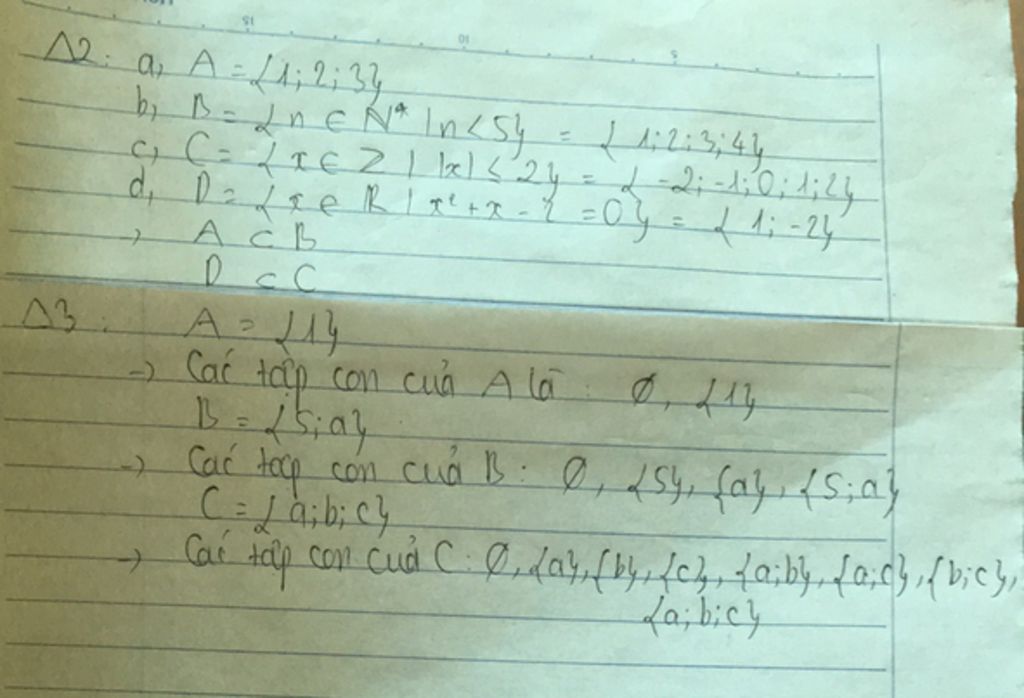 Δ2: a, A = {1; 2; 3}
b, B = {n ∈ N* | n < 5} = {1; 2; 3; 4}
c, C = {x ∈ Z | |x| ≤ 2} = {-2; -1; 0; 1; 2}
d, D = {x ∈ R | x² + x - 2 = 0} = {1; -2}
→ A ⊂ B
D ⊂ C
Δ3: A = {1}
→ Các tập con của A là: Ø, {1}
B = {5; a}
→ Các tập con của B: Ø, {5}, {a}, {5; a}
C = {a; b; c}
→ Các tập con của C: Ø, {a}, {b}, {c}, {a; b}, {a; c}, {b; c},
{a; b; c}